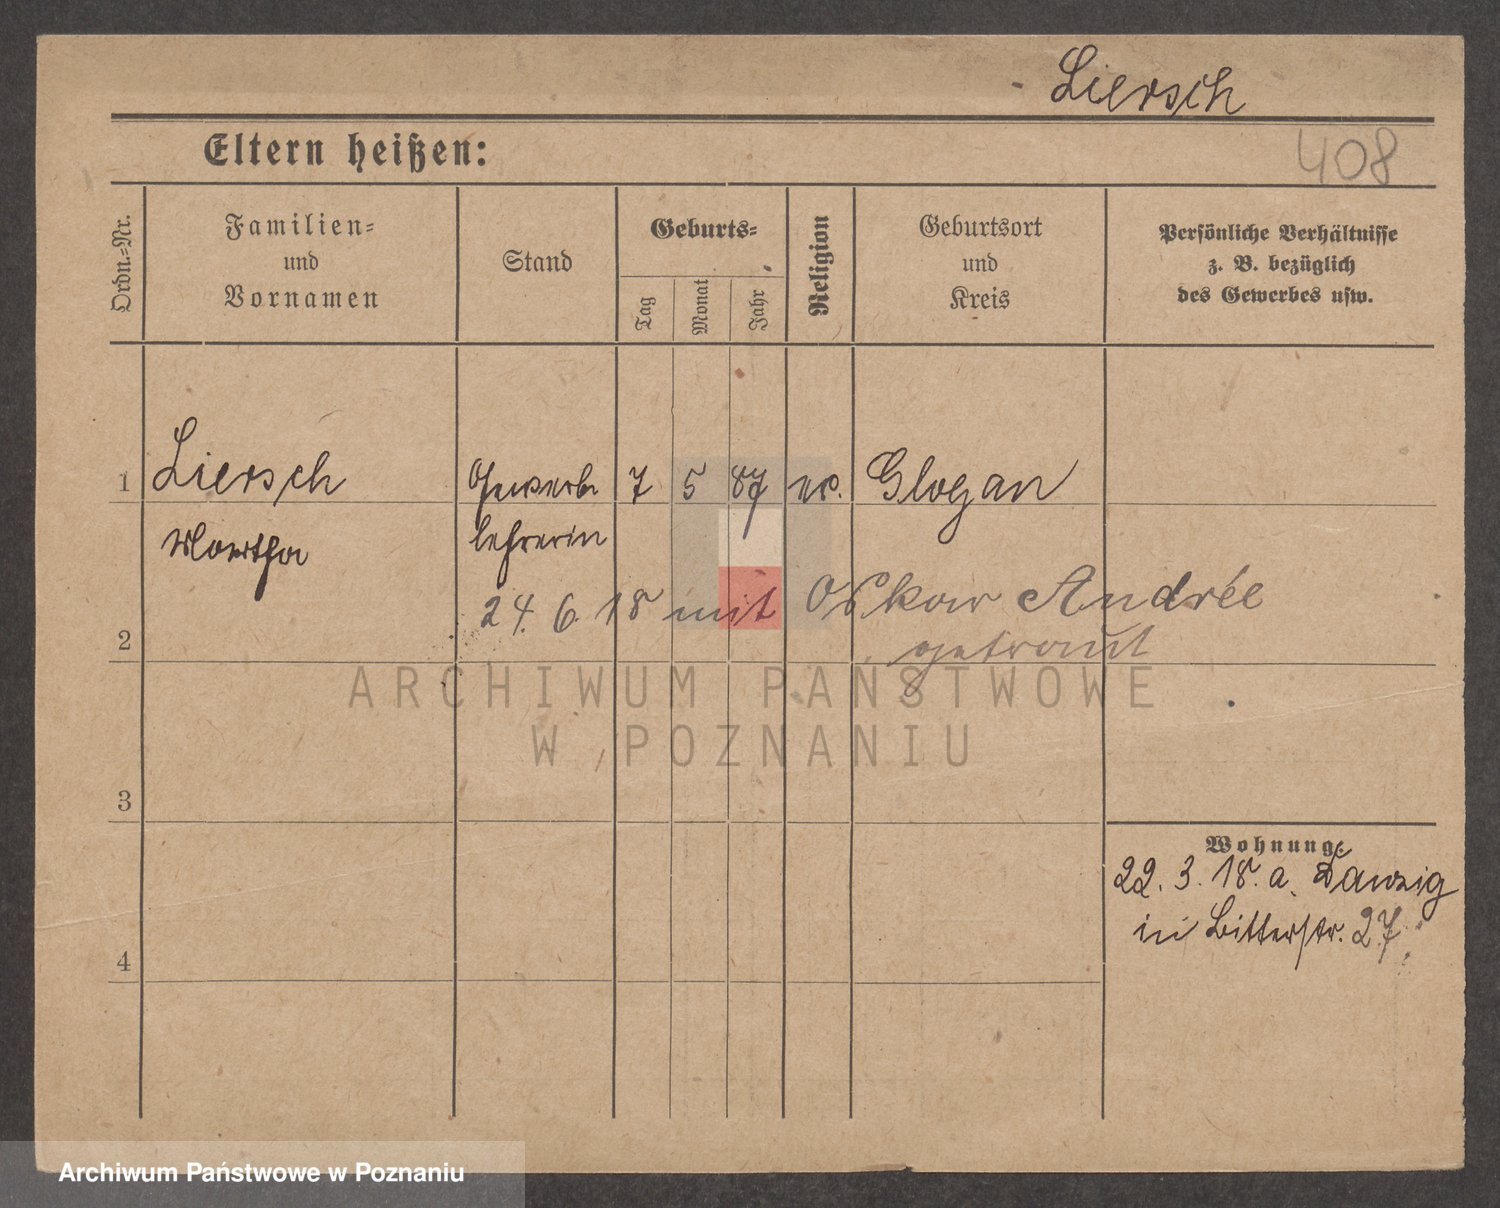 Liersch
408
Eltern heißen:
Ordn.-Nr.
Familien-
und
Vornamen
Stand
Geburts-
Tag
Monat
Jahr
Religion
Geburtsort
und
Kreis
Persönliche Verhältnisse
z. B. bezüglich
des Gewerbes usw.
1 Liersch Gewerbe 7 5 87 ev. Glogau
Martha lehrerin
24. 6. 18 mit Oskar Andrée
2
getraut
ARCHIWUM PAŃSTWOWE
W POZNANIU
3
Wohnung:
22. 3. 18. a. Danzig
in Ritterstr. 27.
4
Archiwum Państwowe w Poznaniu